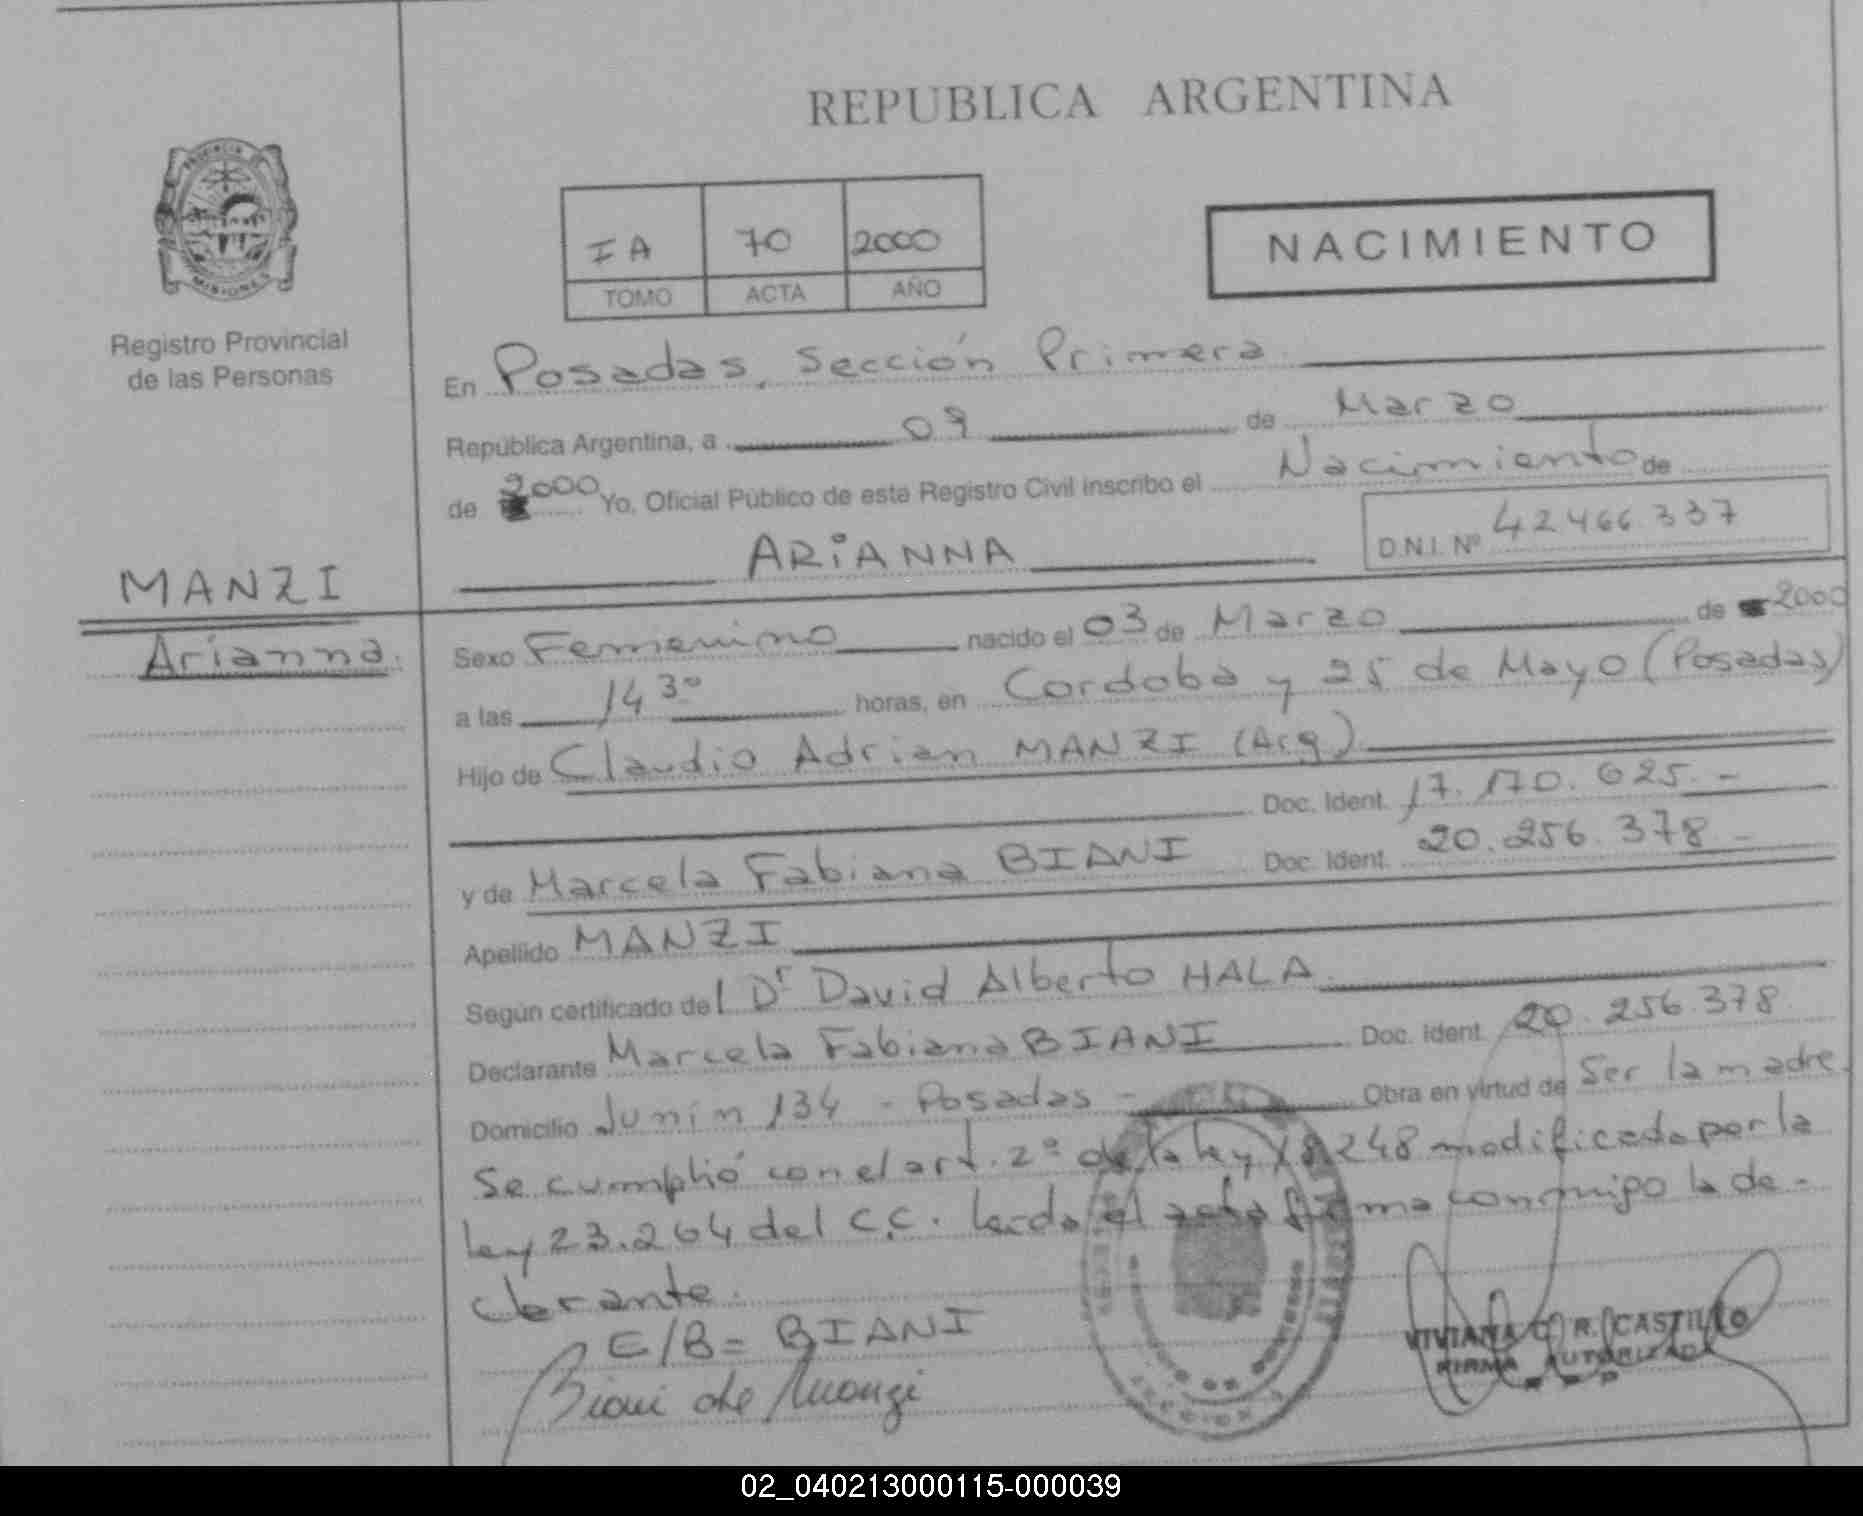 REPUBLICA ARGENTINA
PROVINCIA DE
MISIONES
Registro Provincial
de las Personas
IA 70 2000
TOMO ACTA AÑO
NACIMIENTO
En Posadas, Sección Primera
República Argentina, a 09 de Marzo
de 2000 Yo, Oficial Público de este Registro Civil inscribo el Nacimiento de
ARIANNA D.N.I. Nº 42466337
MANZI
Arianna.
Sexo Femenino nacido el 03 de Marzo de 2000
a las 14 30 horas, en Cordoba y 25 de Mayo (Posadas)
Hijo de Claudio Adrian MANZI (Arg)
Doc. Ident. 17.170.625.-
y de Marcela Fabiana BIANI Doc. Ident. 20.256.378-
Apellido MANZI
Según certificado del Dr David Alberto HALA
Declarante Marcela Fabiana BIANI Doc. Ident. 20.256.378
Domicilio Junín 134 - Posadas - Obra en virtud de Ser la madre.
Se cumplió con el art. 2º de la ley 18248 modificado por la
ley 23.264 del C.C. Leida el acta firma conmigo la de-
clarante.
E/B= BIANI
Biani de Manzi
VIVIANA C. R. CASTILLO
FIRMA AUTORIZADA
02_040213000115-000039